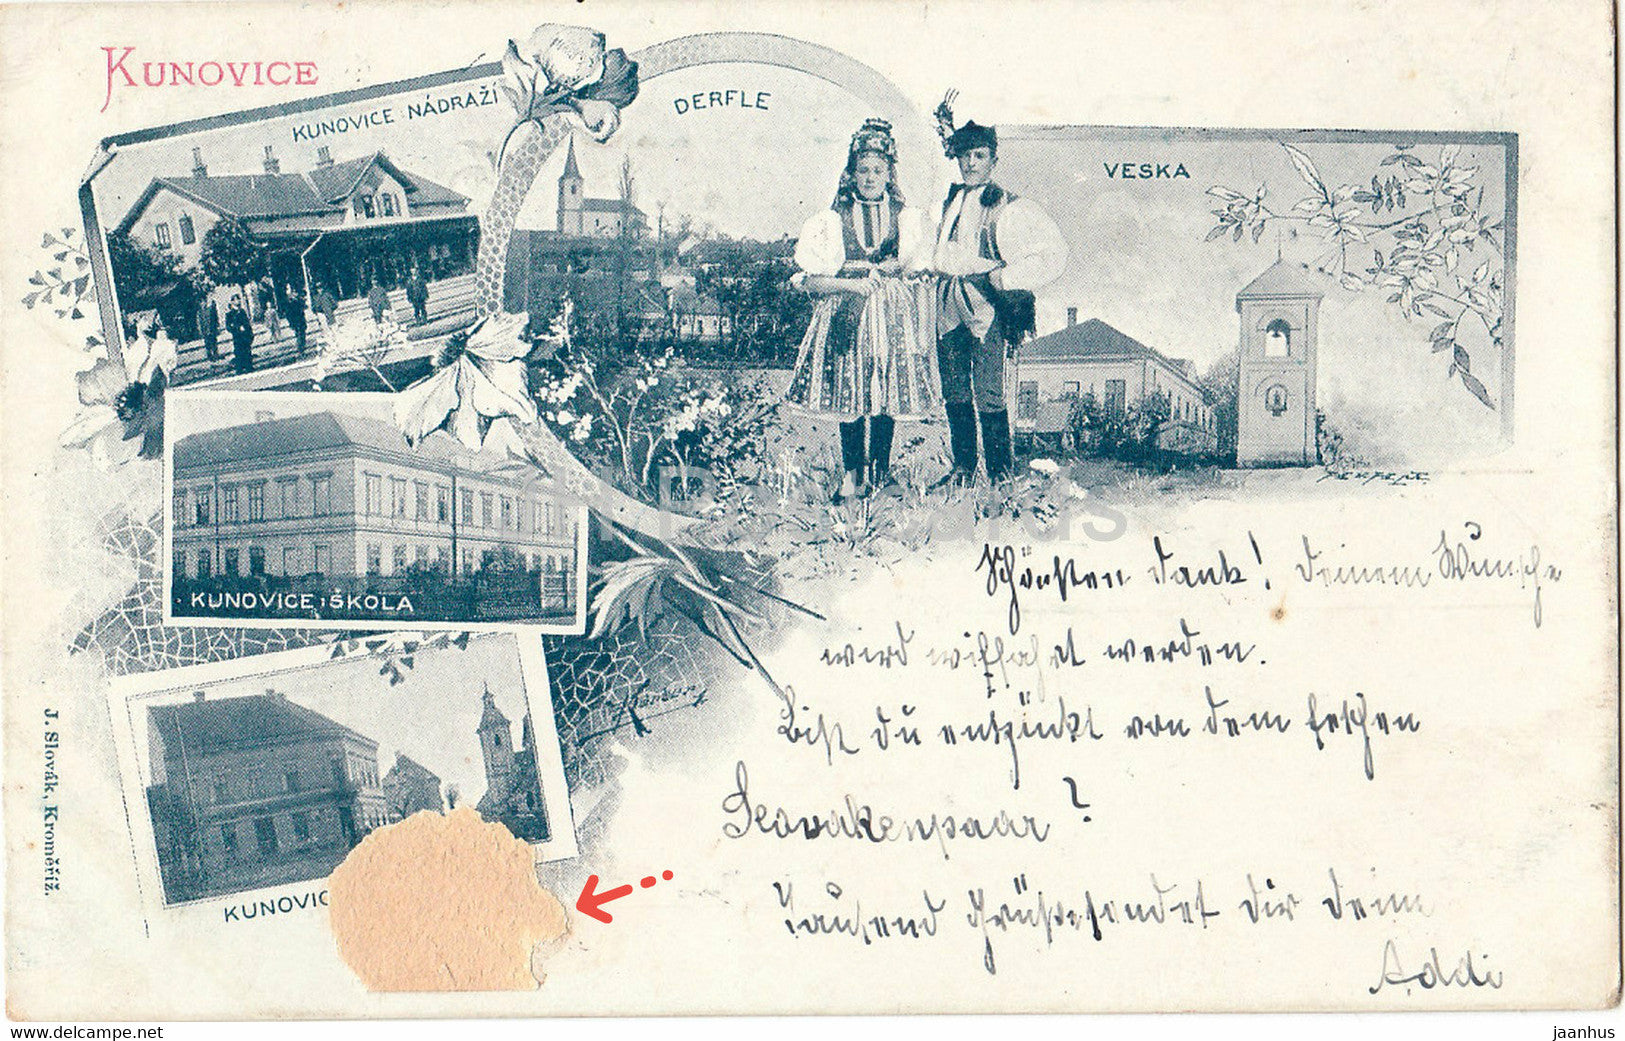 KUNOVICE
KUNOVICE NÁDRAŽÍ
DERFLE
VESKA
KUNOVICE, ŠKOLA
KUNOVIC
J. Slovák, Kroměříž.
H Postcards
Schönsten Dank! Deinem Wunsche
wird willfahrt werden.
Bist du entzückt von dem feschen
Slovakenpaar?
Tausend Grüße sendet dir deine
Addi
hippostcard.com/store/mini.net
jaanhus